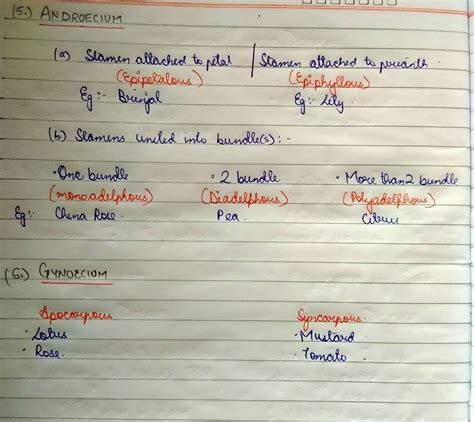 (5.) ANDROECIUM
(a) Stamen attached to petal | Stamen attached to perianth
(Epipetalous) (Epiphyllous)
Eg:- Brinjal Eg:- Lily
(b) Stamens united into bundle(s):-
• One bundle • 2 bundle • More than 2 bundle
(monoadelphous) (Diadelphous) (Polyadelphous)
Eg:- China Rose Pea. Citrus
(6.) GYNOECIUM
Apocarpous Syncarpous.
• Lotus • Mustard
• Rose. • Tomato